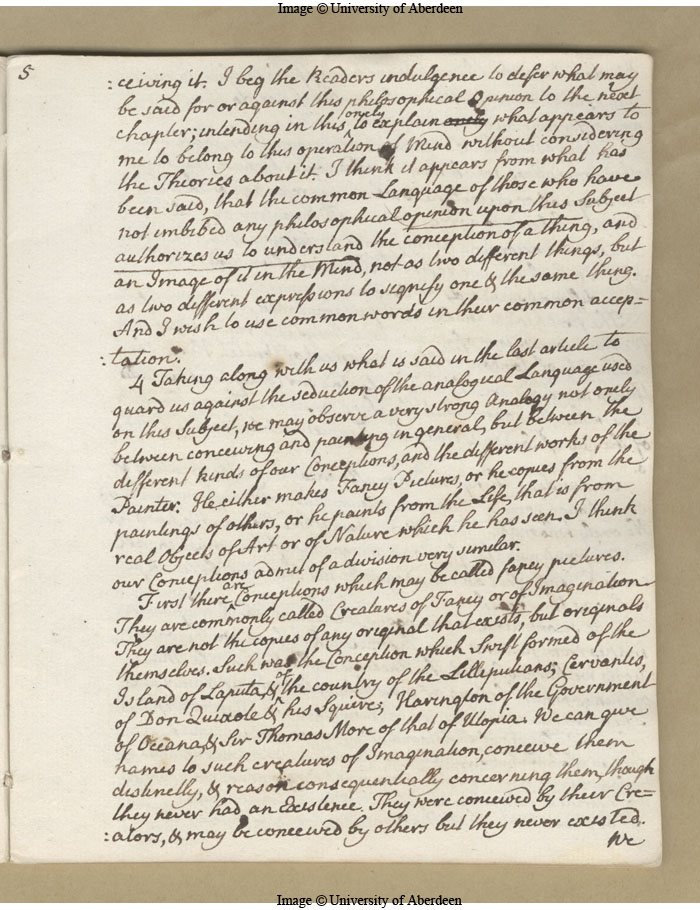 Image © University of Aberdeen
5
:ceiving it. I beg the Readers indulgence to defer what may
be said for or against this philosophical Opinion to the next
chapter; intending in this, onely to explain onely what appears to
me to belong to this operation of Mind without considering
the Theories about it. I think it appears from what has
been said, that the common Language of those who have
not imbibed any philosophical opinion upon this Subject
authorizes us to understand the conception of a thing, and
an Image of it in the Mind, not as two different things, but
as two different expressions to signify one & the same thing.
And I wish to use common words in their common accep=
:tation.
4 Taking along with us what is said in the last article to
guard us against the seduction of the analogical Language used
on this Subject, we may observe a very strong Analogy not onely
between conceiving and painting in general, but between the
different kinds of our Conceptions, and the different works of the
Painter. He either makes Fancy Pictures, or he copies from the
paintings of others, or he paints from the Life, that is from
real Objects of Art or of Nature which he has seen. I think
our Conceptions admit of a division very similar.
First there are Conceptions which may be called fancy pictures.
They are commonly called Creatures of Fancy or of Imagination
They are not the copies of any original that exists, but originals
themselves. Such was the Conception which Swift formed of the
Island of Laputa, & of the country of the Lilleputians; Cervantes,
of Don Quixote & his Squire; Harington of the Government
of Oceana, & Sir Thomas More of that of Utopia. We can give
names to such creatures of Imagination, conceive them
distinctly, & reason consequentially concerning them, though
they never had an Existence. They were conceived by their Cre=
:ators, & may be conceived by others but they never existed.
We
Image © University of Aberdeen